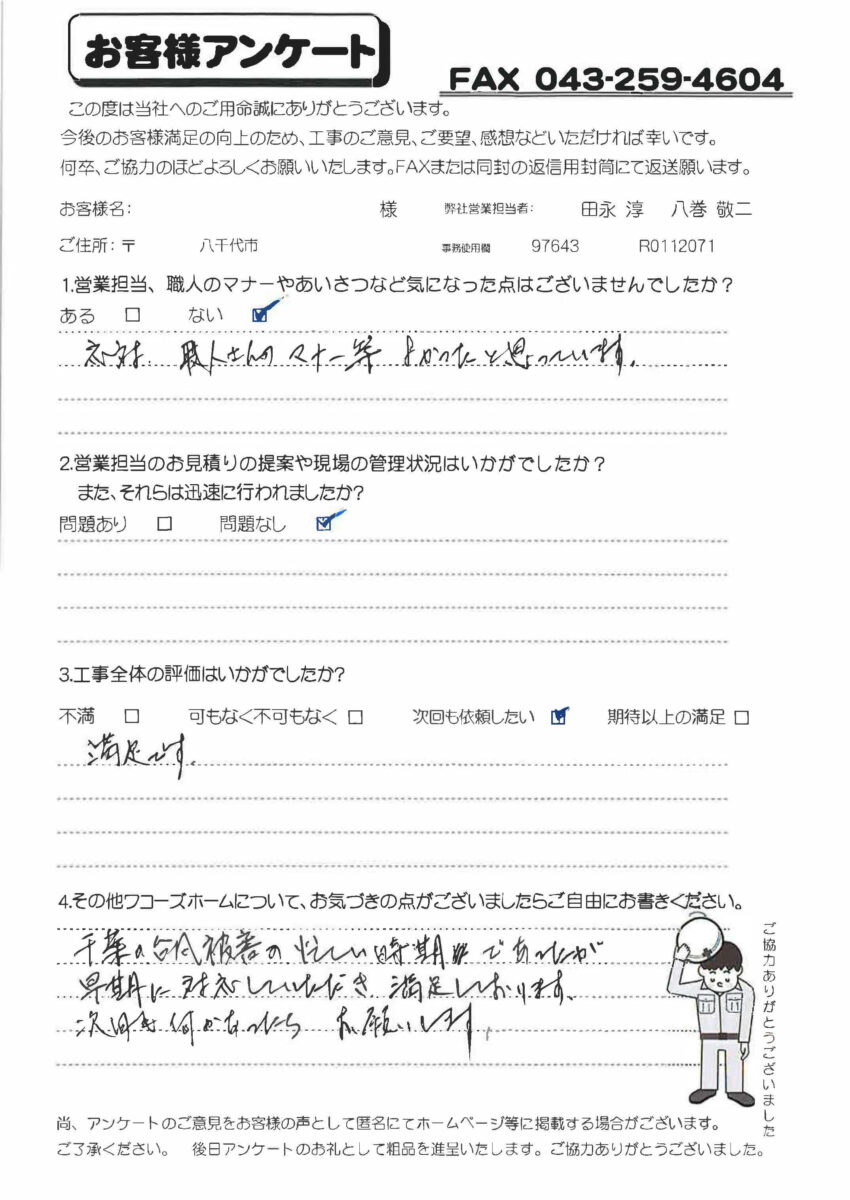 お客様アンケート
FAX 043-259-4604
この度は当社へのご用命誠にありがとうございます。
今後のお客様満足の向上のため、工事のご意見、ご要望、感想などいただければ幸いです。
何卒、ご協力のほどよろしくお願いいたします。FAXまたは同封の返信用封筒にて返送願います。
お客様名： 様 弊社営業担当者： 田永 淳 八巻 敬二
ご住所：〒 八千代市 事務使用欄 97643 R0112071
1.営業担当、職人のマナーやあいさつなど気になった点はございませんでしたか？
ある □ ない ☑
職人さんのマナー等 よかったと思っています。
2.営業担当のお見積りの提案や現場の管理状況はいかがでしたか？
また、それらは迅速に行われましたか？
問題あり □ 問題なし ☑
3.工事全体の評価はいかがでしたか?
不満 □ 可もなく不可もなく □ 次回も依頼したい ☑ 期待以上の満足 □
満足です。
4.その他ワコーズホームについて、お気づきの点がございましたらご自由にお書きください。
千葉の台風被害の忙しい時期であったが
早期に対応していただき 満足しております。
次回も何かあったら お願いします。
ご協力ありがとうございました
尚、アンケートのご意見をお客様の声として匿名にてホームページ等に掲載する場合がございます。
ご了承ください。 後日アンケートのお礼として粗品を進呈いたします。ご協力ありがとうございました。